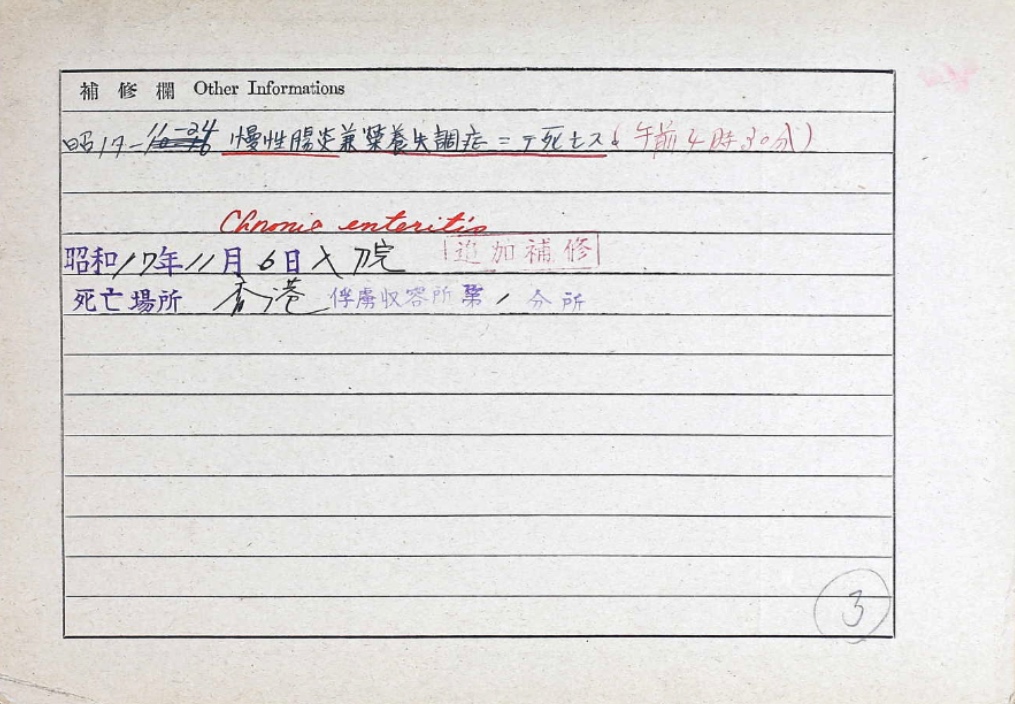 補修欄 Other Informations
昭17-11-24 慢性腸炎兼榮養失調症ニテ死亡ス(午前4時30分)
Chronic enteritis
昭和17年11月6日入院 追加補修
死亡場所 香港俘虜収容所第1分所
3